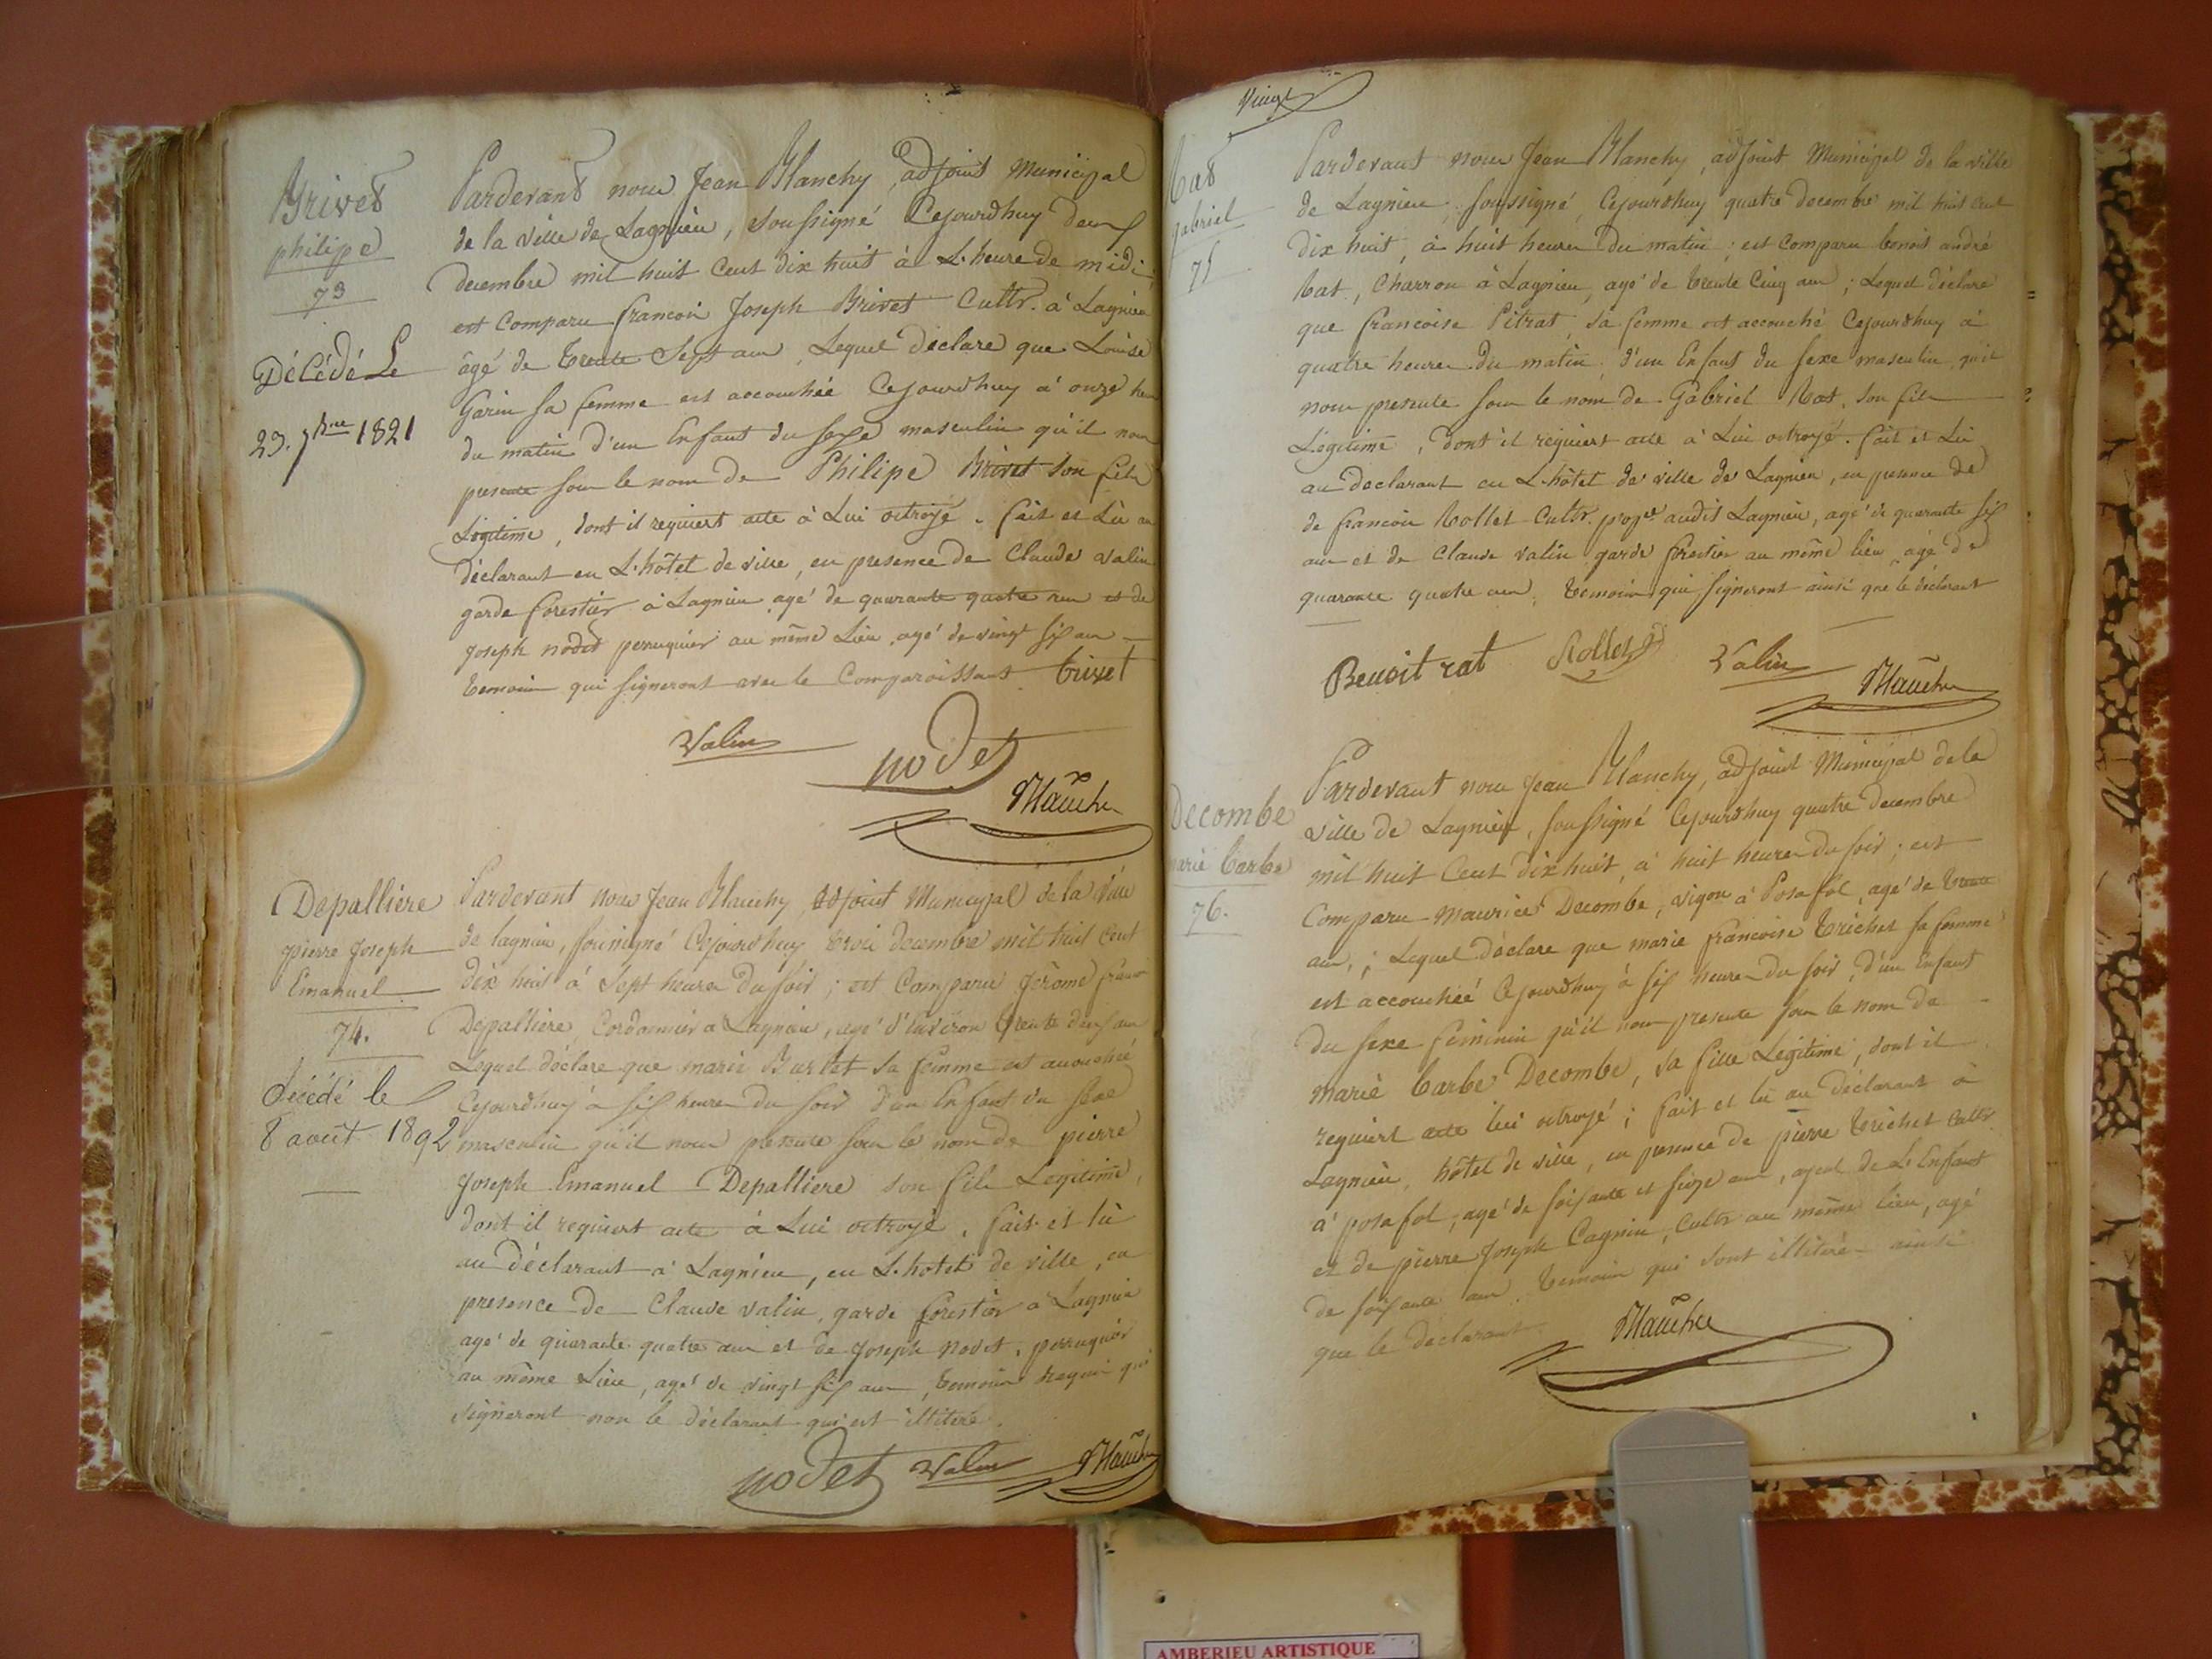 Brivet
philipe
73
Décédé Le
23. 7bre 1821
Pardevant nous Jean Blanchy, adjoint municipal
de la ville de Lagnieu, soussigné Cejourdhuy deux
decembre mil huit Cent dix huit à L'heure de midi;
est Comparu francois Joseph Brivet Cultr. à Lagnieu
âgé de trente Sept ans, Lequel déclare que Louise
Garin sa femme est accouchée Cejourdhuy à onze heu
du matin d'un Enfant du sexe masculin qu'il nous
presente sous le nom de Philipe Brivet son fils
Légitime, dont il requiert acte à Lui octroyé. fait et Lù au
déclarant en L'hôtel de ville, en presence de Claude valin
garde forestier à Lagnieu agé de quarante quatre ans et de
joseph nodet peruquier au même Lieu, agé de vingt six ans
temoins qui signeront avec le Comparoissant brivet
Valin
nodet
Blanchy
Depalliere
pierre Joseph
Emanuel
74.
décédé le
8 août 1892
Pardevant Nous Jean Blanchy, Adjoint Municipal de la Ville
de lagnieu, soussigné Cejourdhuy trois decembre mil huit Cent
dix huit à Sept heures du soir; est Comparu Jérome francois
Depalliere, Cordonnier à Lagnieu, agé d'Environ trente deux ans
Lequel déclare que marie Burlet sa femme est accouchée
Cejourdhuy à six heures du soir d'un Enfant du sexe
masculin qu'il nous presente sous le nom de pierre
Joseph Emanuel Depalliere son fils Legitime,
dont il requiert acte à Lui octroyé. fait et lù
au déclarant à Lagnieu, en L'hotel de ville, en
presence de Claude valin, garde forestier à Lagnieu
agé de quarante quatre ans et de Joseph nodet, peruquier
au même Lieu, agé de vingt six ans, temoins requis qui
signeront non le déclarant qui est illiteré.
nodet Valin Blanchy
Vingt
Rat
gabriel
75
Pardevant nous Jean Blanchy, adjoint Municipal de la ville
de Lagnieu, soussigné, Cejourdhuy quatre decembre mil huit Cent
dix huit, à huit heures du matin; est Comparu benoit andré
Rat, Charron à Lagnieu, agé de trente Cinq ans; Lequel déclare
que francoise Pitrat, sa femme est accouché Cejourdhuy à
quatre heures du matin, d'un Enfant du sexe masculin, qu'il
nous presente sous le nom de Gabriel Rat, son fils
Légitime, dont il requiert acte à Lui octroyé. fait et Lù
au declarant en L'hôtel de ville de Lagnieu, en presence de
de francois Rollet Cultr. propre. audit Lagnieu, agé de quarante six
ans et de Claude valin garde forestier au même lieu, agé de
quarante quatre ans, temoins qui signeront ainsi que le déclarant
Benoit rat Rollet Valin
Blanchy
Decombe
marie barbe
76.
Pardevant nous Jean Blanchy, adjoint Municipal de la
ville de Lagnieu, soussigné Cejourdhuy quatre decembre
mil huit Cent dix huit, à huit heures du soir; est
Comparu Maurice Decombe, vigon à Posafol, agé de trente
ans,; Lequel déclare que marie francoise trichet sa femme
est accouchéé Cejourdhuy à six heures du soir, d'un Enfant
du sexe feminin qu'il nous presente sous le nom de
marie barbe Decombe, sa fille Legitime, dont il
requiert acte lui octroyé; fait et lù au déclarant à
Lagnieu, hôtel de ville, en presence de pierre trichet Cultr.
à posafol, agé de soixante et seize ans, ayeul de L'Enfant
et de pierre Joseph Cagnin, Cultr au même lieu, agé
de soixante ans, temoins qui sont illiterés ainsi
que le déclarant.
Blanchy
AMBERIEU ARTISTIQUE